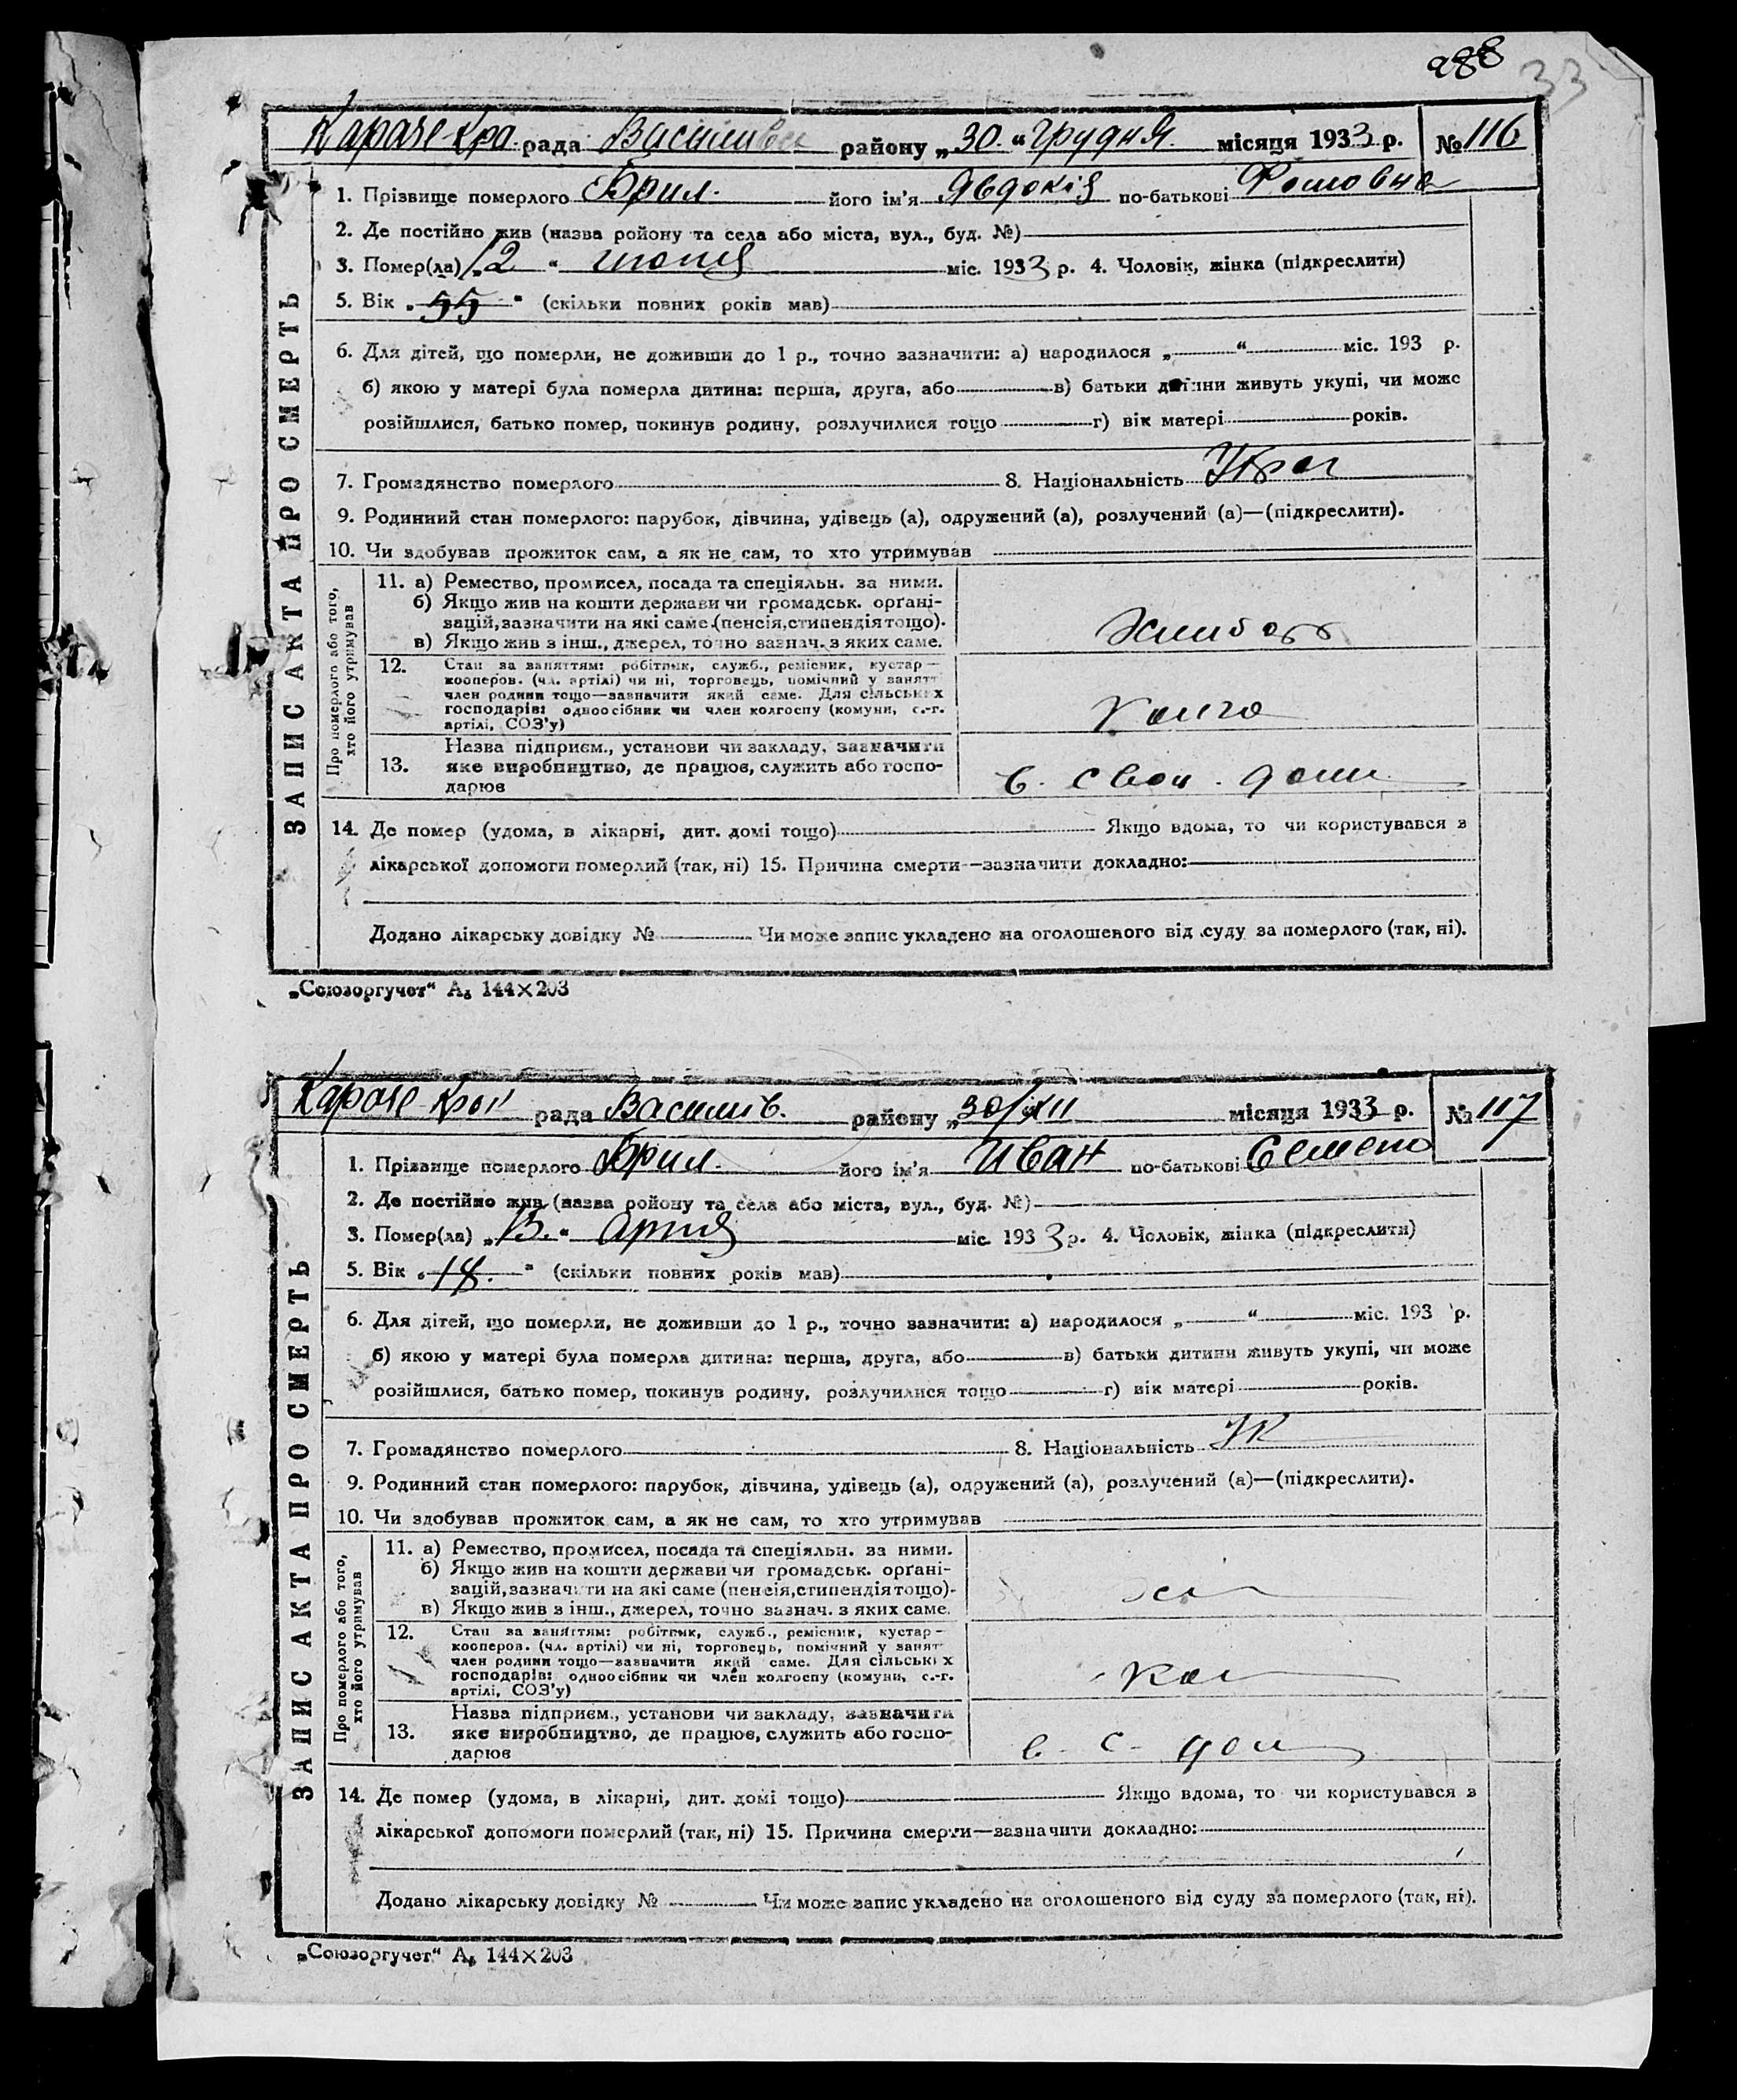 288
33
Караче Кра. рада Василивск району „30.“ Грудня. місяця 1933 р. № 116
1. Прізвище померлого Брил. його ім'я Явдокія по-батькові Фомовна
2. Де постійно жив (назва ройону та села або міста, вул., буд. №)
3. Помер(ла) „12“ июня міс. 1933 р. 4. Чоловік, жінка (підкреслити)
5. Вік „55“ (скільки повних років мав)
6. Для дітей, що померли, не доживши до 1 р., точно зазначити: а) народилося „ “ міс. 193 р.
б) якою у матері була померла дитина: перша, друга, або в) батьки дитини живуть укупі, чи може
розійшлися, батько помер, покинув родину, розлучилися тощо г) вік матері років.
7. Громадянство померлого 8. Національність Укра
9. Родинний стан померлого: парубок, дівчина, удівець (а), одружений (а), розлучений (а)—(підкреслити).
10. Чи здобував прожиток сам, а як не сам, то хто утримував
ЗАПИС АКТА ПРО СМЕРТЬ
Про померлого або того, хто його утримував
11. а) Ремество, промисел, посада та спеціяльн. за ними.
б) Якщо жив на кошти держави чи громадськ. орґані-
зацій, зазначити на які саме (пенсія, стипендія тощо).
в) Якщо жив з інш., джерел, точно зазнач. з яких саме.
12. Стан за заняттям: робітник, служб., ремісник, кустар—
кооперов. (чл. артілі) чи ні, торговець, помічний у занятт
член родини тощо—зазначити який саме. Для сільських
господарів: одноосібник чи член колгоспу (комуни, с.-г.
артілі, СОЗ'у)
Назва підприєм., установи чи закладу, зазначити
13. яке виробництво, де працює, служить або госпо-
дарює
в. свои. доми
14. Де помер (удома, в лікарні, дит. домі тощо) Якщо вдома, то чи користувався з
лікарської допомоги померлий (так, ні) 15. Причина смерти—зазначити докладно:
Додано лікарську довідку № Чи може запис укладено на оголошеного від суду за померлого (так, ні).
„Союзоргучет“ А₅ 144×203
Караче Кра рада Василив. району „30/XII місяця 1933 р. № 117
1. Прізвище померлого Брил. його ім'я Иван по-батькові Семено
2. Де постійно жив (назва ройону та села або міста, вул., буд. №)
3. Помер(ла) „13.“ априя міс. 1933 р. 4. Чоловік, жінка (підкреслити)
5. Вік „18.“ (скільки повних років мав)
6. Для дітей, що померли, не доживши до 1 р., точно зазначити: а) народилося „ “ міс. 193 р.
б) якою у матері була померла дитина: перша, друга, або в) батьки дитини живуть укупі, чи може
розійшлися, батько помер, покинув родину, розлучилися тощо г) вік матері років.
7. Громадянство померлого 8. Національність Ук
9. Родинний стан померлого: парубок, дівчина, удівець (а), одружений (а), розлучений (а)—(підкреслити).
10. Чи здобував прожиток сам, а як не сам, то хто утримував
ЗАПИС АКТА ПРО СМЕРТЬ
Про померлого або того, хто його утримував
11. а) Ремество, промисел, посада та спеціяльн. за ними.
б) Якщо жив на кошти держави чи громадськ. орґані-
зацій, зазначити на які саме (пенсія, стипендія тощо).
в) Якщо жив з інш., джерел, точно зазнач. з яких саме.
12. Стан за заняттям: робітник, служб., ремісник, кустар—
кооперов. (чл. артілі) чи ні, торговець, помічний у занят
член родини тощо—зазначити який саме. Для сільських
господарів: одноосібник чи член колгоспу (комуни, с.-г.
артілі, СОЗ'у)
Кол
Назва підприєм., установи чи закладу, зазначити
13. яке виробництво, де працює, служить або госпо-
дарює
в. с. дом
14. Де помер (удома, в лікарні, дит. домі тощо) Якщо вдома, то чи користувався з
лікарської допомоги померлий (так, ні) 15. Причина смерти—зазначити докладно:
Додано лікарську довідку № Чи може запис укладено на оголошеного від суду за померлого (так, ні).
„Союзоргучет“ А₅ 144×203